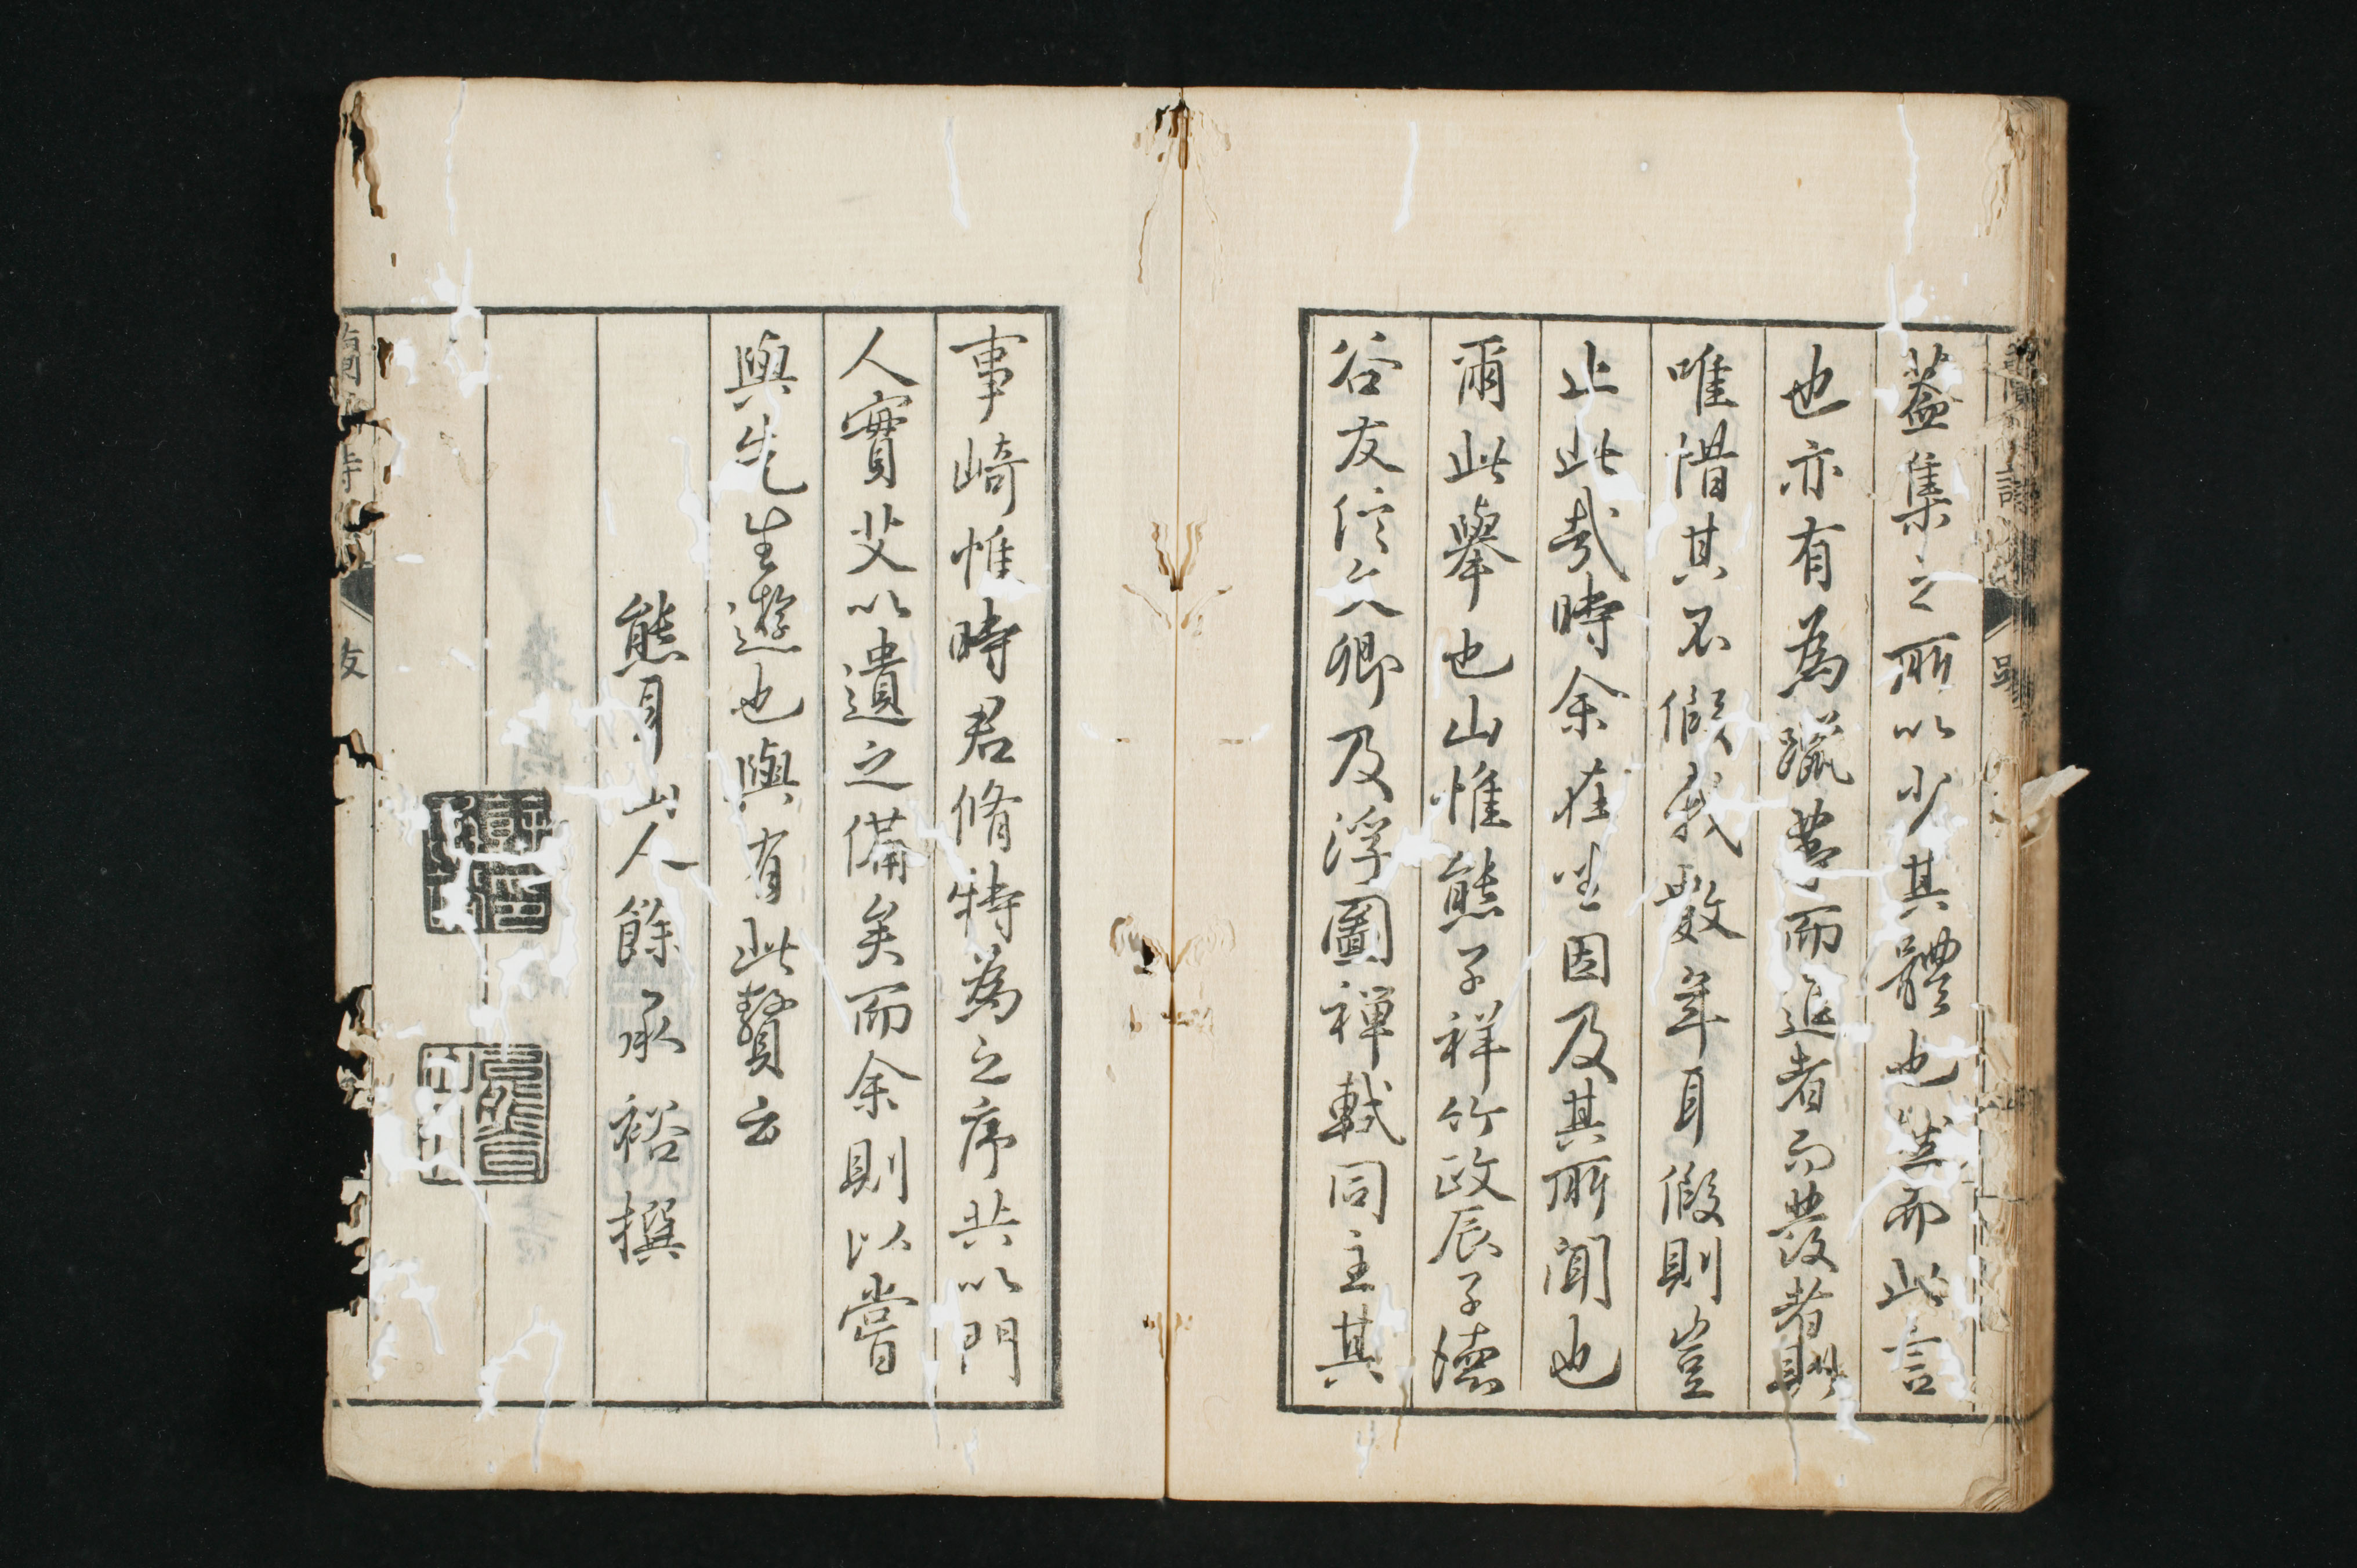 蓋集之所以少其體也然而此言
也亦有為躐等而進者而發者歟
唯惜其不假我數年耳假則豈
止此哉時余在坐因及其所聞也
爾此舉也山惟熊子祥竹政辰子德
谷友信文卿及浮圖禪軾同主其
事崎惟時君脩特為之序共以門
人實芟以遺之備矣而余則以嘗
與先生遊也與有此贊云
熊耳山人餘承裕撰